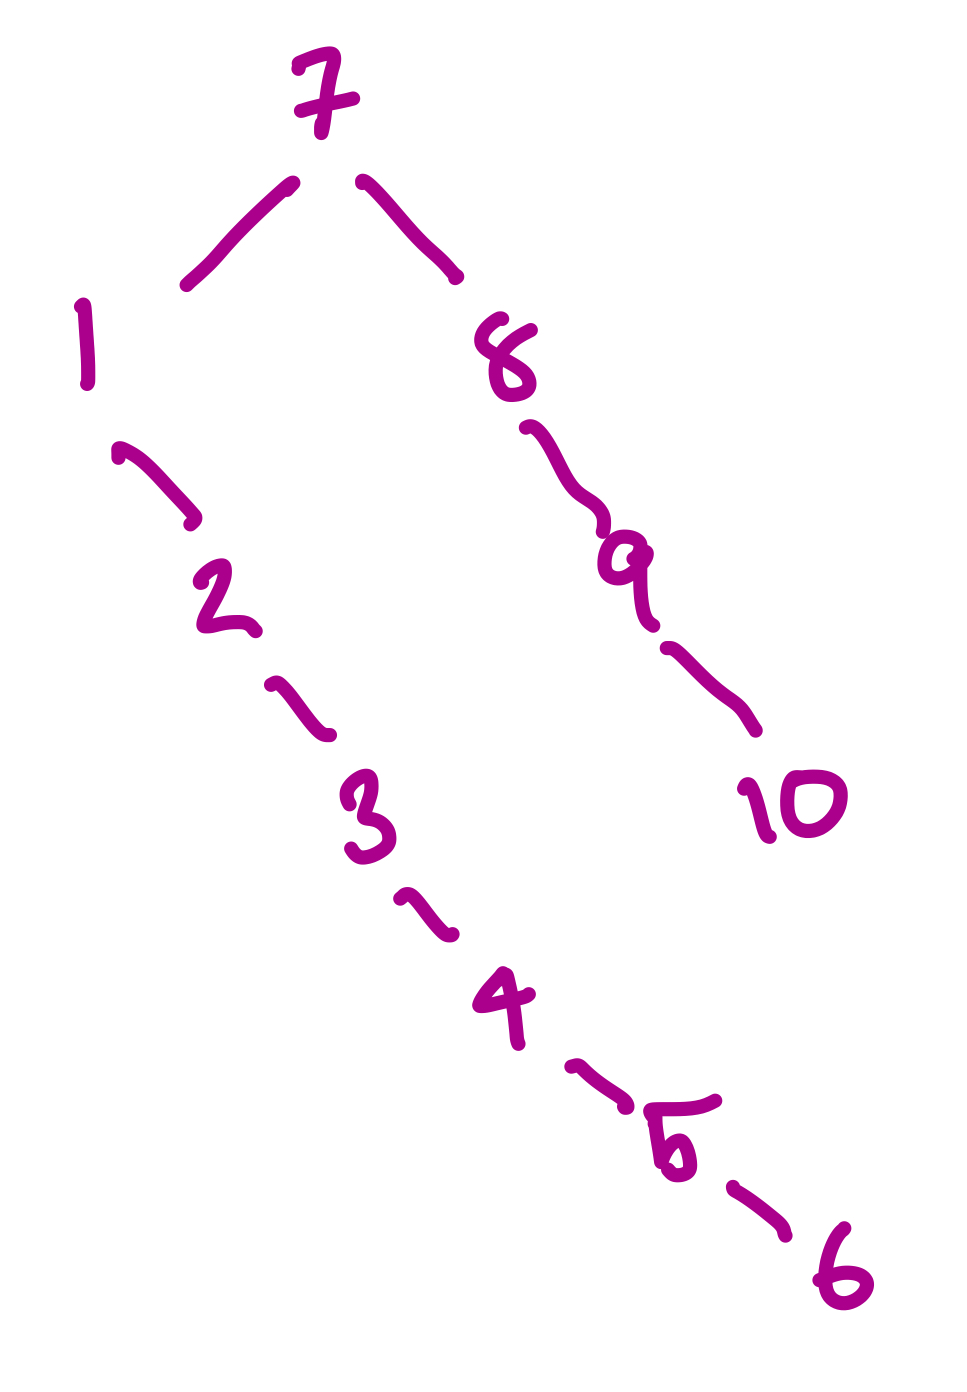 7
1
8
2
9
3
10
4
5
6